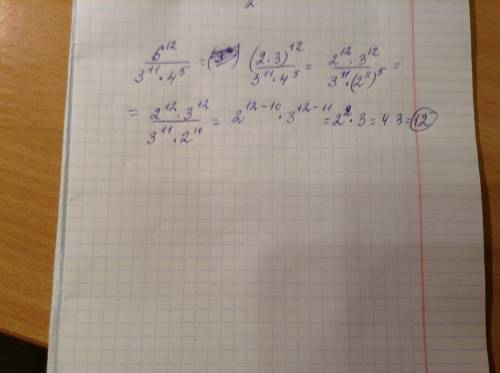 2
6^12 / (3^11 · 4^5) = (2·3)^12 / (3^11 · 4^5) = (2^12 · 3^12) / (3^11 · (2^2)^5) =
= (2^12 · 3^12) / (3^11 · 2^10) = 2^(12-10) · 3^(12-11) = 2^2 · 3 = 4·3 = 12